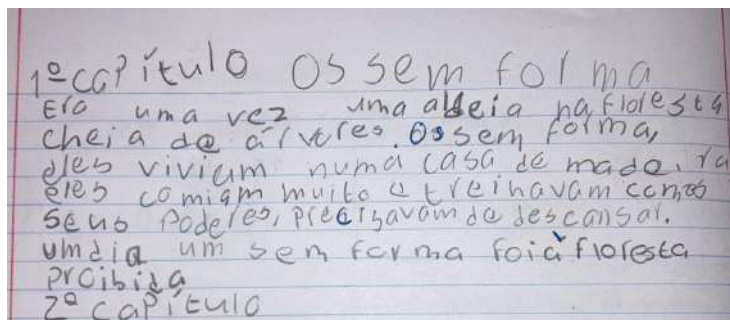 1º capítulo Os sem forma
Era uma vez uma aldeia na floresta
cheia de árveres. Os sem forma,
eles vivium numa casa de madeira
eles comiam muito e treinavam com os
seus poderes, precisavam de descansar.
um dia um sem forma foi à floresta
proibida
2º capítulo